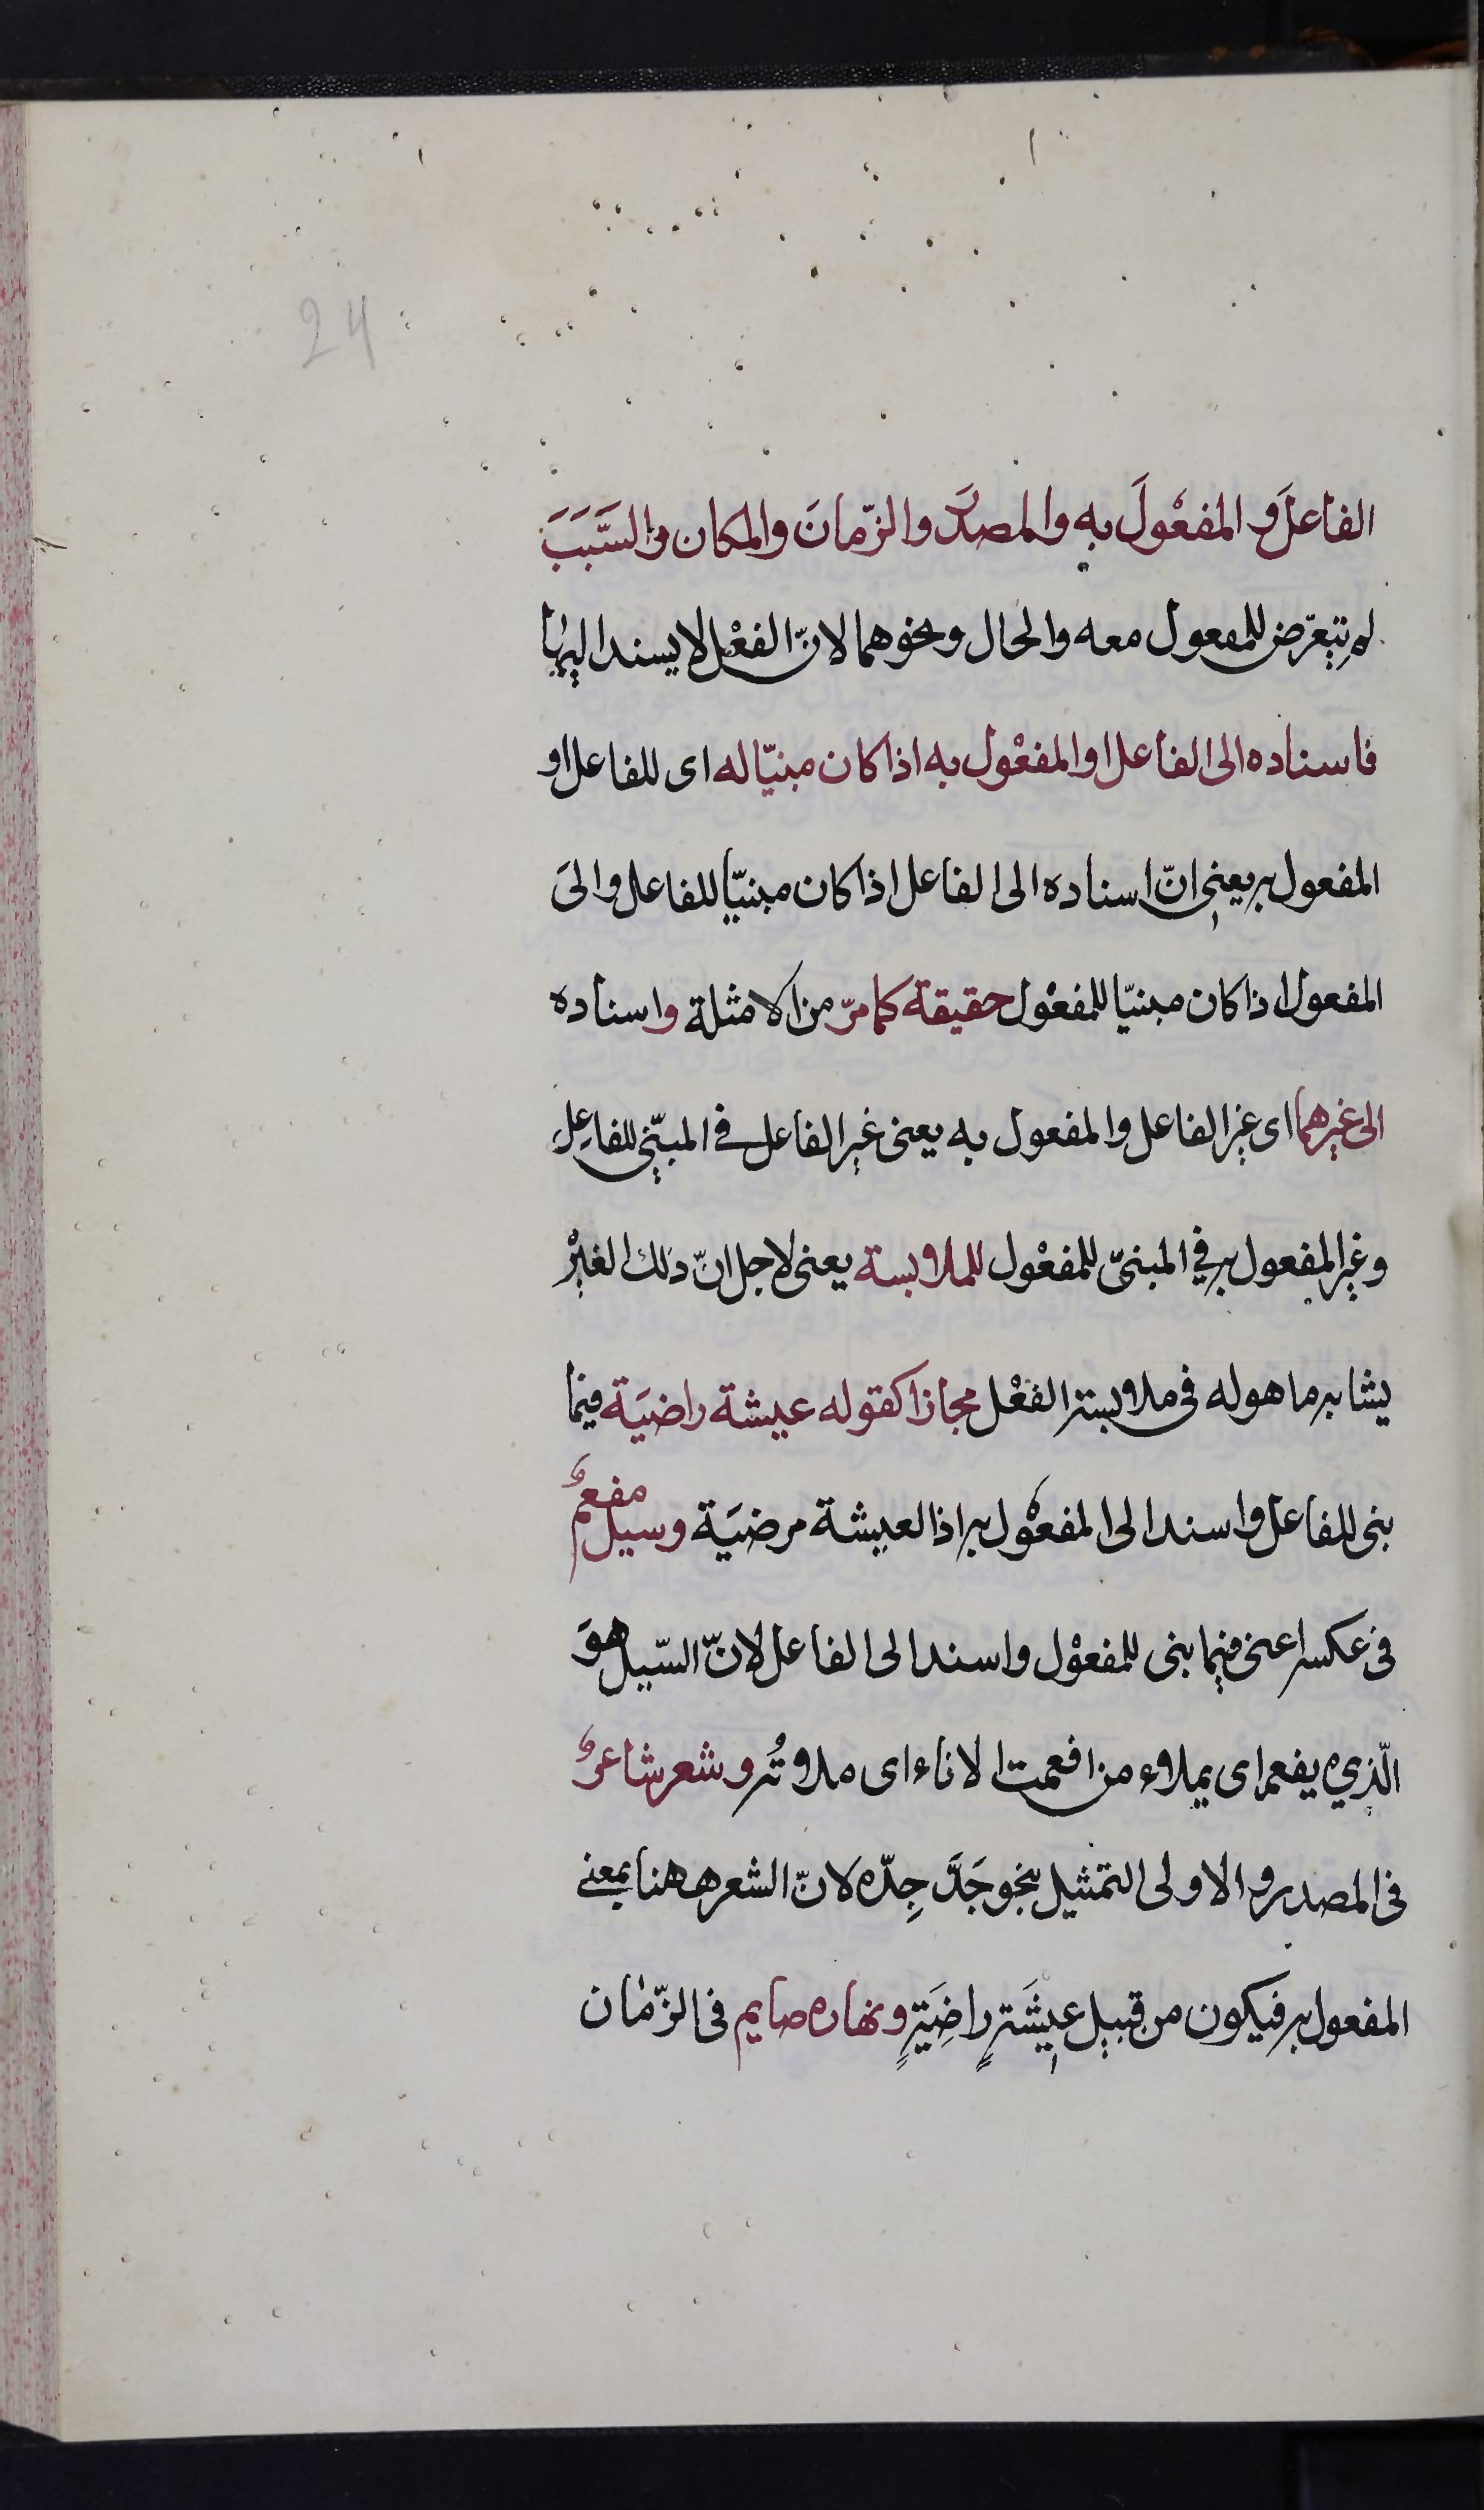 24
الفاعلَ و المفعُولَ به والمصدَر والزّمانَ والمكان والسَّبَبَ
لم يتعرّض للمفعول معه والحال ونحوهما لانّ الفعْل لا يسند اليها
فاسناده الى الفاعل او المفعْول به اذا كان مبنيّا له اى للفاعل او
المفعول به يعني انّ اسناده الى الفاعل اذا كان مبنيّا للفاعل والىَ
المفعول اذا كان مبنيّا للمفعْول حقيقة كما مرّ من الامثلة واسناده
الى غيرهما اى غير الفاعل والمفعول به يعنى غير الفاعل فے المبنّي للفاعِل
وغير المفعول به في المبنىّ للمفعْول للملابسة يعنى لاجل انّ ذلك الغيرْ
يشابه ما هو له فى ملابسة الفعْل مجازا كقوله عيشة راضيَة فيما
بنى للفاعل واسند الى المفعْول به اذ العيشة مرضيَة وسيل مفعمٌ
فى عكسه اعنى فيما بنى للمفعوْل واسند الى الفاعل لانّ السّيل هوَ
الّذي يفعم اى يملاء من افعمت الاناء اى ملاٴتُه وشعر شاعرٌ
فى المصدر والاولى التمثيل بنحو جَدَّ جِدّه لانّ الشعر ههنا بمعنے
المفعول به فيكون من قبيل عيشَةٍ راضِيَةٍ ونهاره صايم فى الزّمان